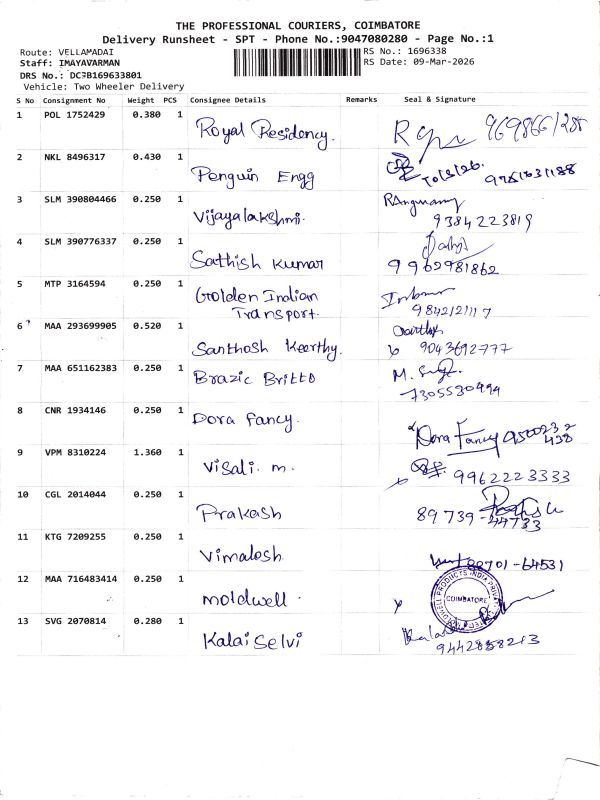 THE PROFESSIONAL COURIERS, COIMBATORE
Delivery Runsheet - SPT - Phone No.:9047080280 - Page No.:1
Route: VELLAMADAI
RS No.: 1696338
Staff: IMAYAVARMAN
RS Date: 09-Mar-2026
DRS No.: DCFB169633801
Vehicle: Two Wheeler Delivery
S No Consignment No Weight PCS Consignee Details Remarks Seal & Signature
1 POL 1752429 0.380 1 Royal Residency.
2 NKL 8496317 0.430 1 Penguin Engg
3 SLM 390804466 0.250 1 Vijayalakshmi. 9384223819
4 SLM 390776337 0.250 1 Sathish Kumar 9962981862
5 MTP 3164594 0.250 1 Golden Indian
Transport. 9842121117
6 MAA 293699905 0.520 1 Santhosh Keerthy. 9043692777
7 MAA 651162383 0.250 1 Brazic Britto M. 7305530494
8 CNR 1934146 0.250 1 Dora Fancy. Dora Fancy 9500232
438
9 VPM 8310224 1.360 1 Visali. m. 9962223333
10 CGL 2014044 0.250 1 Prakash 89739-44733
11 KTG 7209255 0.250 1 Vimalesh 88701-64531
12 MAA 716483414 0.250 1 Moldwell. COIMBATORE
13 SVG 2070814 0.280 1 Kalai Selvi Kalai
9442858213